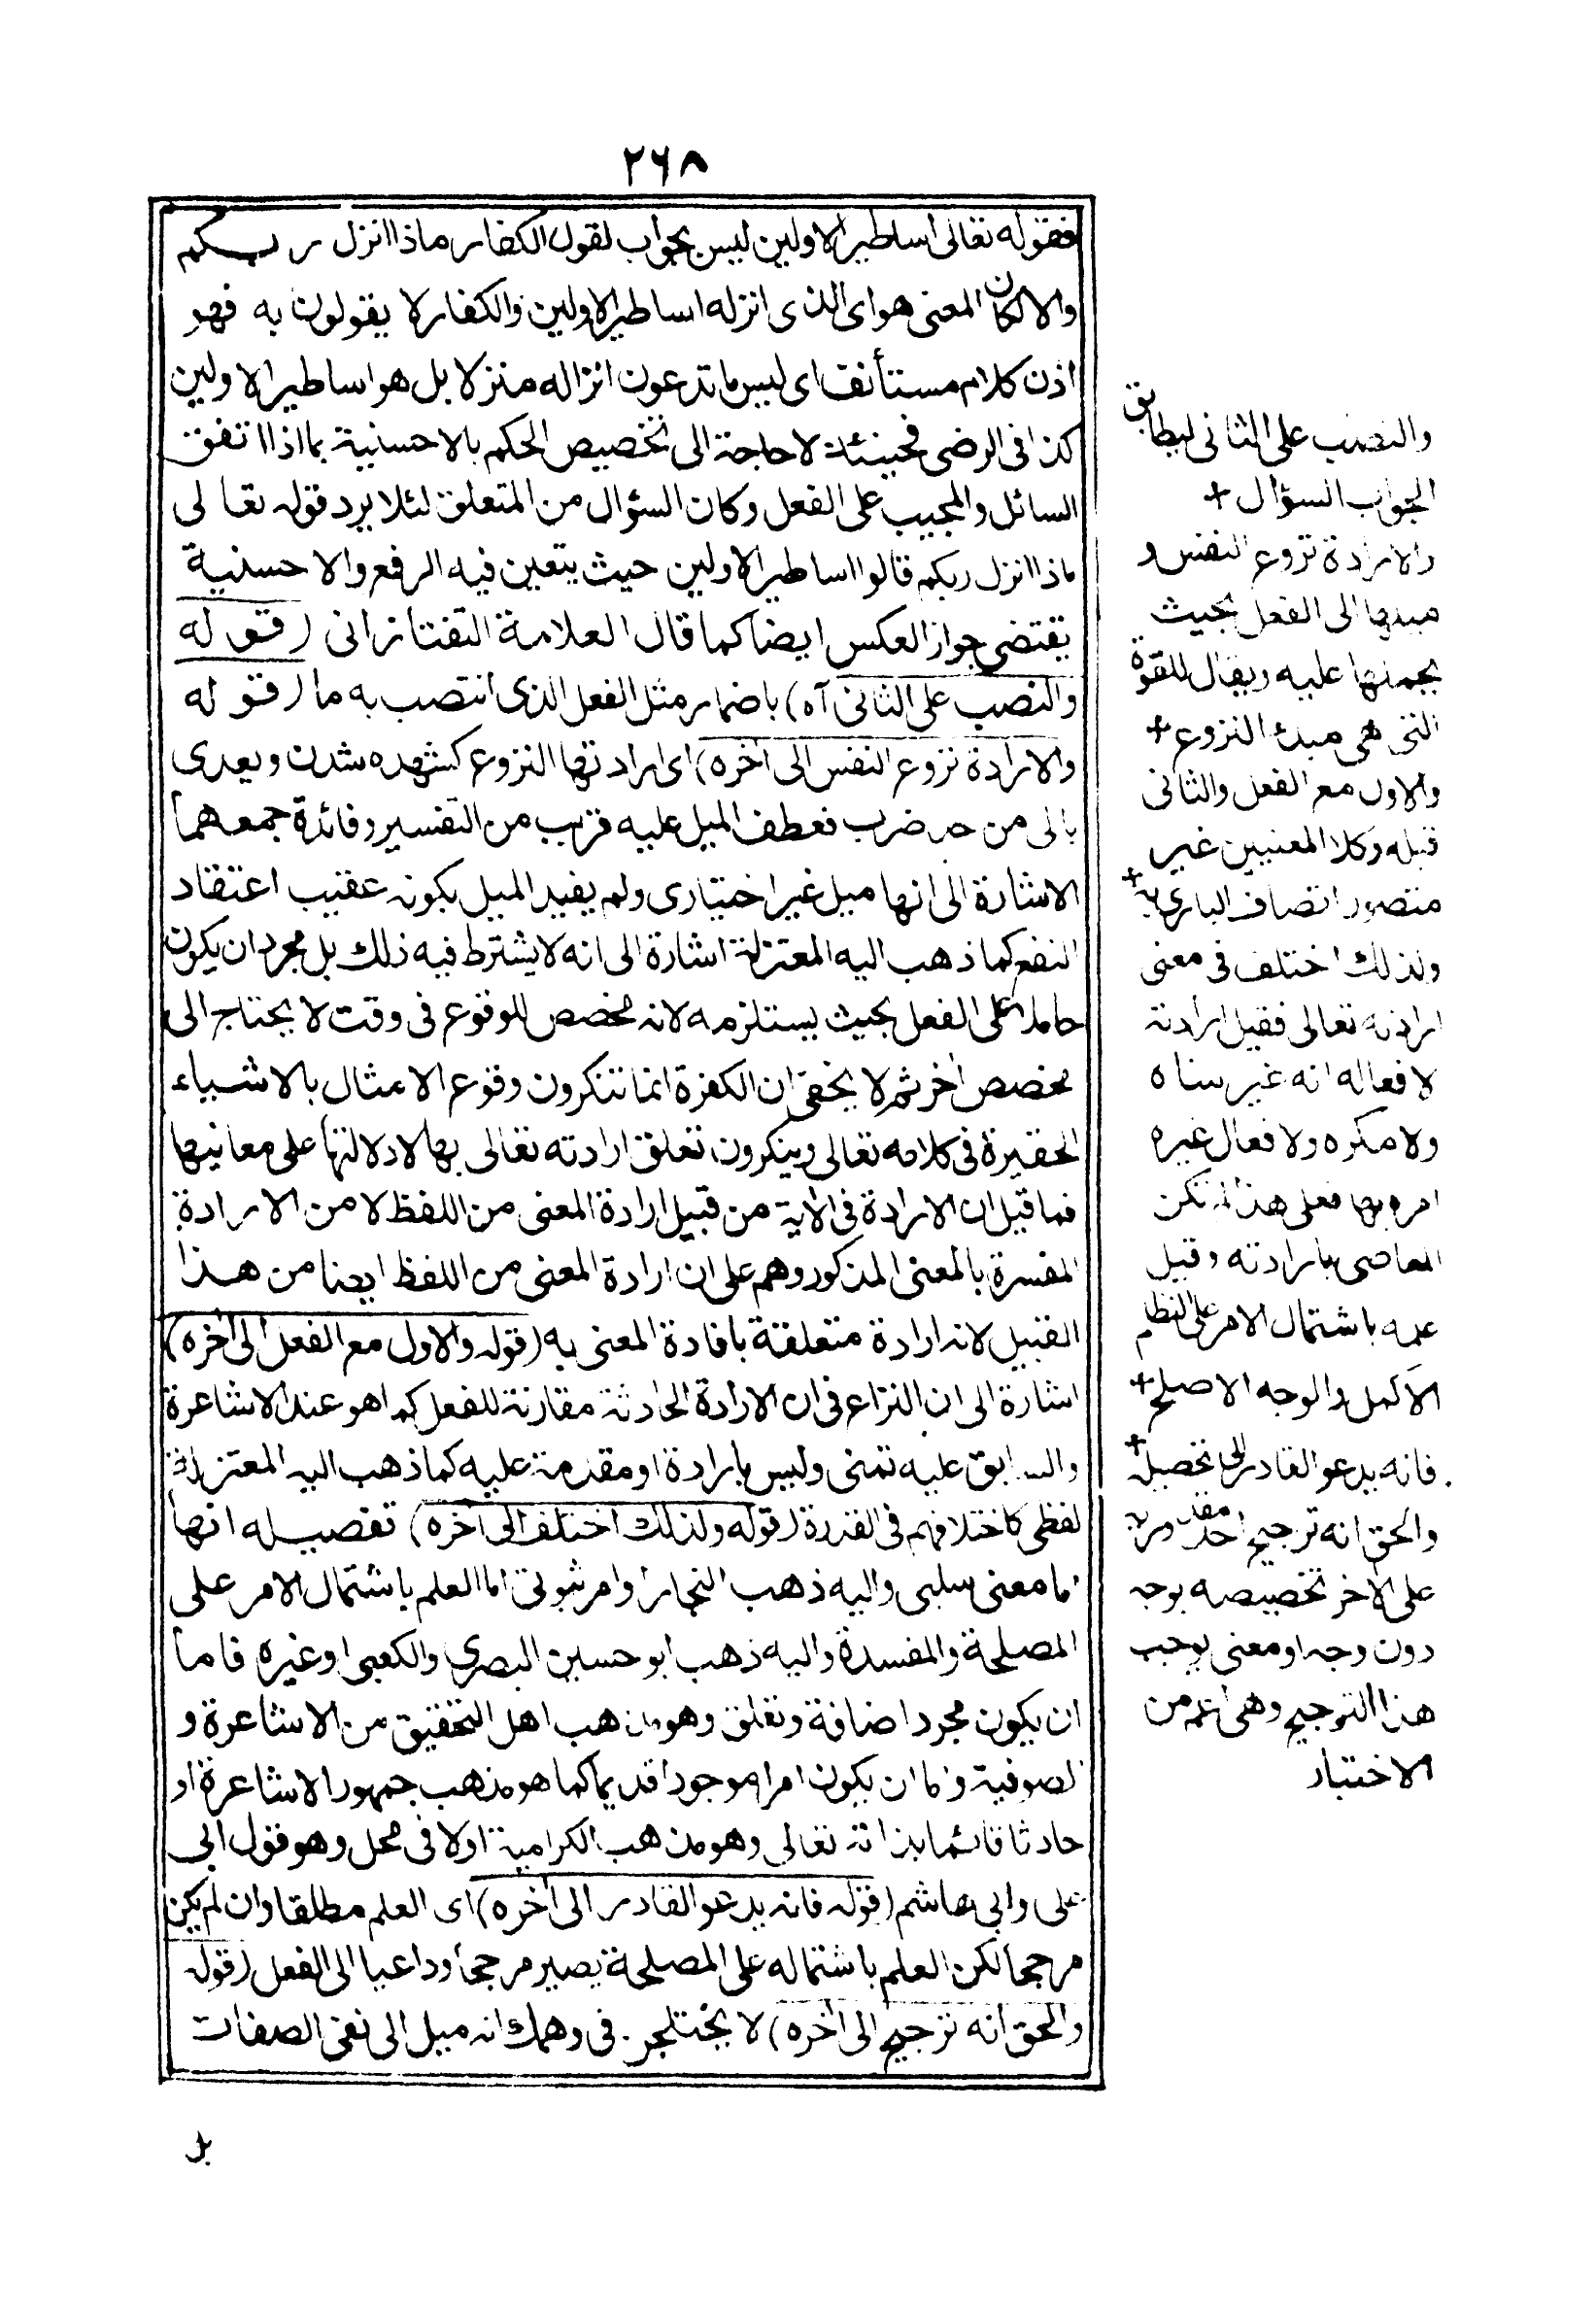 ٢٦٨
فقوله تعالى اساطير الاولين ليس بجواب لقول الكفار ماذا انزل ربكم
والا لكان المعنى هو اى الذى انزله اساطير الاولين والكفار لا يقولون به فهو
اذن كلام مستأنف اى ليس ما تدعون انزاله منزلا بل هو اساطير الاولين
كذا فى الرضى فحينئذ لا حاجة الى تخصيص الحكم بالاحسنية بما اذا اتفق
السائل والمجيب على الفعل وكان السؤال من المتعلق لئلا يرد قوله تعالى
ماذا انزل ربكم قالوا اساطير الاولين حيث يتعين فيه الرفع والاحسنية
يقتضى جواز العكس ايضا كما قال العلامة التفتازانى (قوله
والنصب على الثانى آه) باضمار مثل الفعل الذى انتصب به ما (قوله
والارادة نزوع النفس الى آخره) اى ارادتها النزوع كشهده شدن ويعدى
بالى من حد ضرب فعطف الميل عليه قريب من التفسير وفائدة جمعهما
الاشارة الى انها ميل غير اختيارى ولم يفيد الميل بكونه عقيب اعتقاد
النفع كما ذهب اليه المعتزلة اشارة الى انه لا يشترط فيه ذلك بل مجرد ان يكون
حاملا على الفعل بحيث يستلزمه لانه مخصص للوقوع فى وقت لا يحتاج الى
مخصص اخر ثم لا يخفى ان الكفرة انما تنكرون وقوع الامثال بالاشياء
الحقيرة فى كلامه تعالى وينكرون تعلق ارادته تعالى بها لا دلالتها على معانيها
فما قيل ان الارادة فى الآية من قبيل ارادة المعنى من اللفظ لا من الارادة
المفسرة بالمعنى المذكور وهم على ان ارادة المعنى من اللفظ ايضا من هذا
القبيل لانه ارادة متعلقة بافادة المعنى به (قوله والاول مع الفعل الى آخره)
اشارة الى ان النزاع فى ان الارادة الحادثة مقارنة للفعل كما هو عند الاشاعرة
والسابق عليه تمنى وليس بارادة او مقدمة عليه كما ذهب اليه المعتزلة
لفظى كاختلافهم فى القدرة (قوله ولذلك اختلف الى آخره) تفصيله انها
اما معنى سلبى واليه ذهب النجار او امر ثبوتى اما العلم باشتمال الامر على
المصلحة والمفسدة واليه ذهب ابو حسين البصرى والكعبى او غيره فاما
ان يكون مجرد اضافة وتعلق وهو مذهب اهل التحقيق من الاشاعرة و
الصوفية واما ان يكون امرا موجودا قديما كما هو مذهب جمهور الاشاعرة او
حادثا قائما بذاته تعالى وهو مذهب الكرامية اولا فى محل وهو قول ابى
على وابى هاشم (قوله فانه يدعو القادر الى آخره) اى العلم مطلقا وان لم يكن
مرجحا لكن العلم باشتماله على المصلحة يصير مرجحا وداعيا الى الفعل (قوله
والحق انه ترجيح الى آخره) لا يختلجن فى وهمك انه ميل الى نفى الصفات
بل
والنصب على الثانى ليطابق
الجواب السؤال +
والارادة نزوع النفس و
ميلها الى الفعل بحيث
يحملها عليه ويقال للقوة
التى هى مبدء النزوع +
والاول مع الفعل والثانى
قبله وكلا المعنيين غير
متصور اتصاف البارى به +
ولذلك اختلف فى معنى
ارادته تعالى فقيل ارادته
لافعاله انه غير ساه
ولا مكره ولافعال غيره
امره بها فعلى هذا لم تكن
المعاصى بارادته وقيل
علمه باشتمال الامر على النظام
الاكمل والوجه الاصلح +
فانه يدعو القادر الى تحصيله +
والحق انه ترجيح احد مقدوريه
على الاخر تخصيصه بوجه
دون وجه او معنى يوجب
هذا الترجيح وهى اعم من
الاختيار